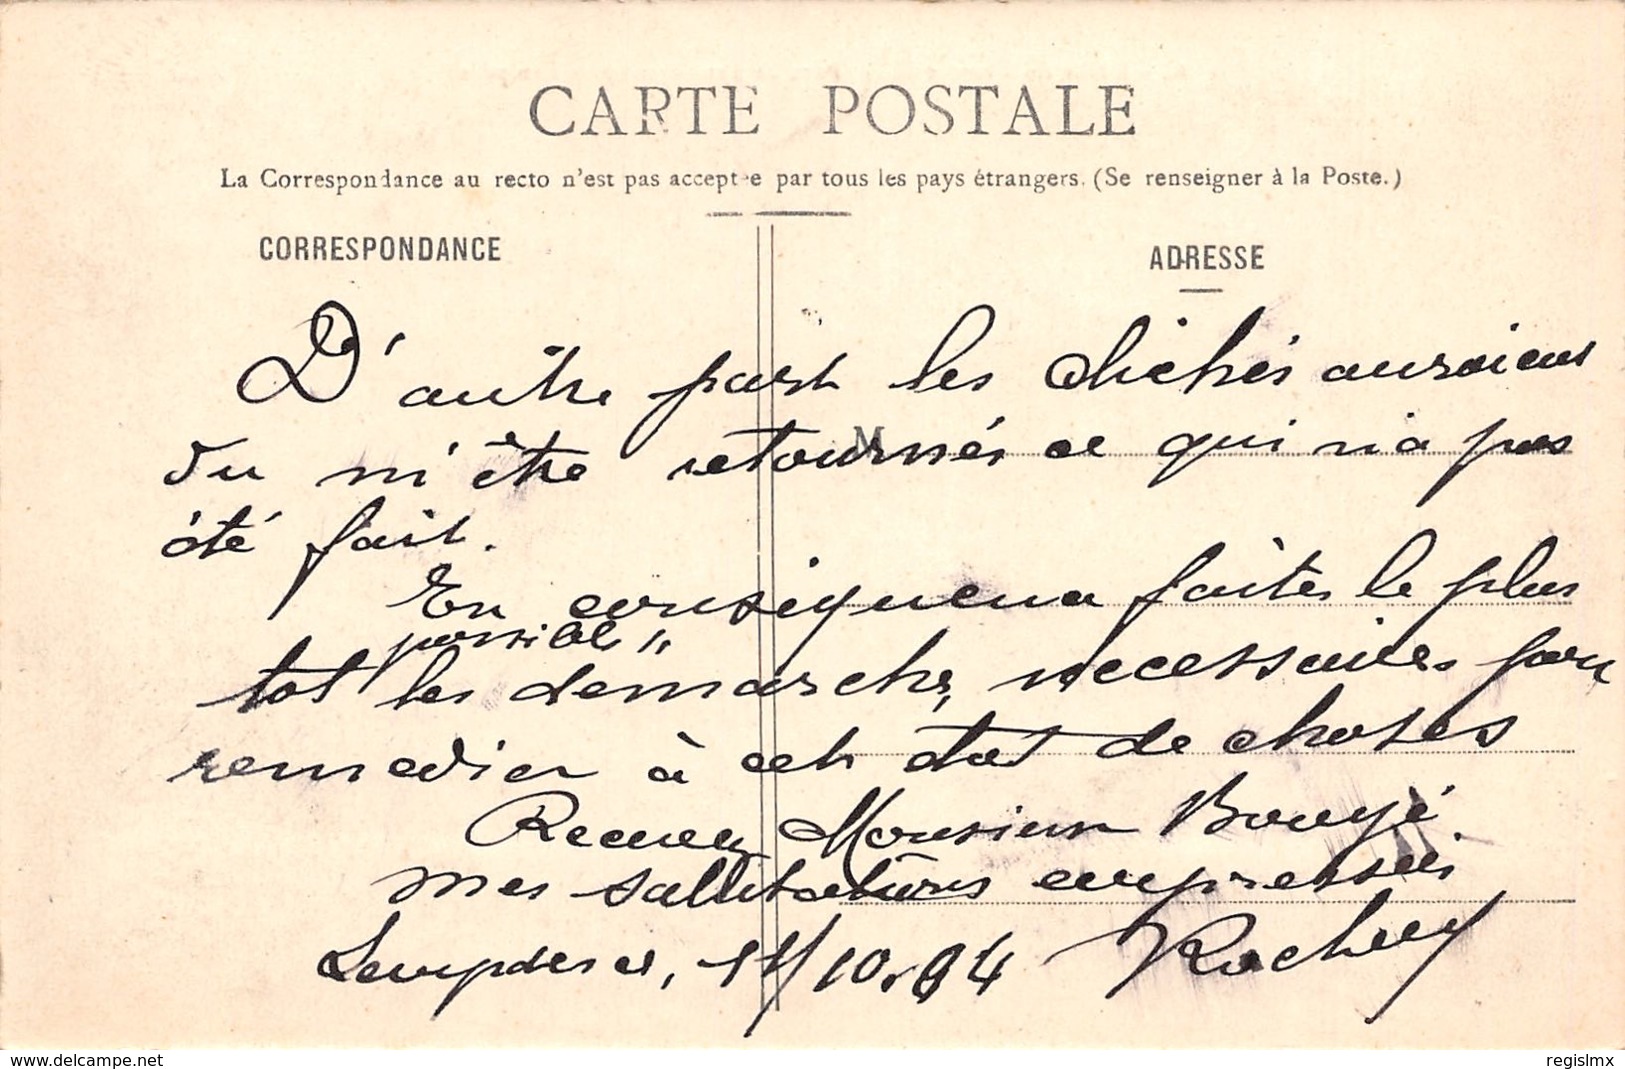 CARTE POSTALE
La Correspondance au recto n'est pas acceptée par tous les pays étrangers. (Se renseigner à la Poste.)
CORRESPONDANCE
ADRESSE
M
D'autre part les clichés auraient
du m'être retournés ce qui n'a pas
été fait.
En conséquence faites le plus
possible
tot les demarches necessaires pour
remedier à cet état de choses
Recevez Monsieur Bougé.
mes salutations empressées
Lempdes, 11/10.04 Rochuy
www.delcampe.net
regislmx